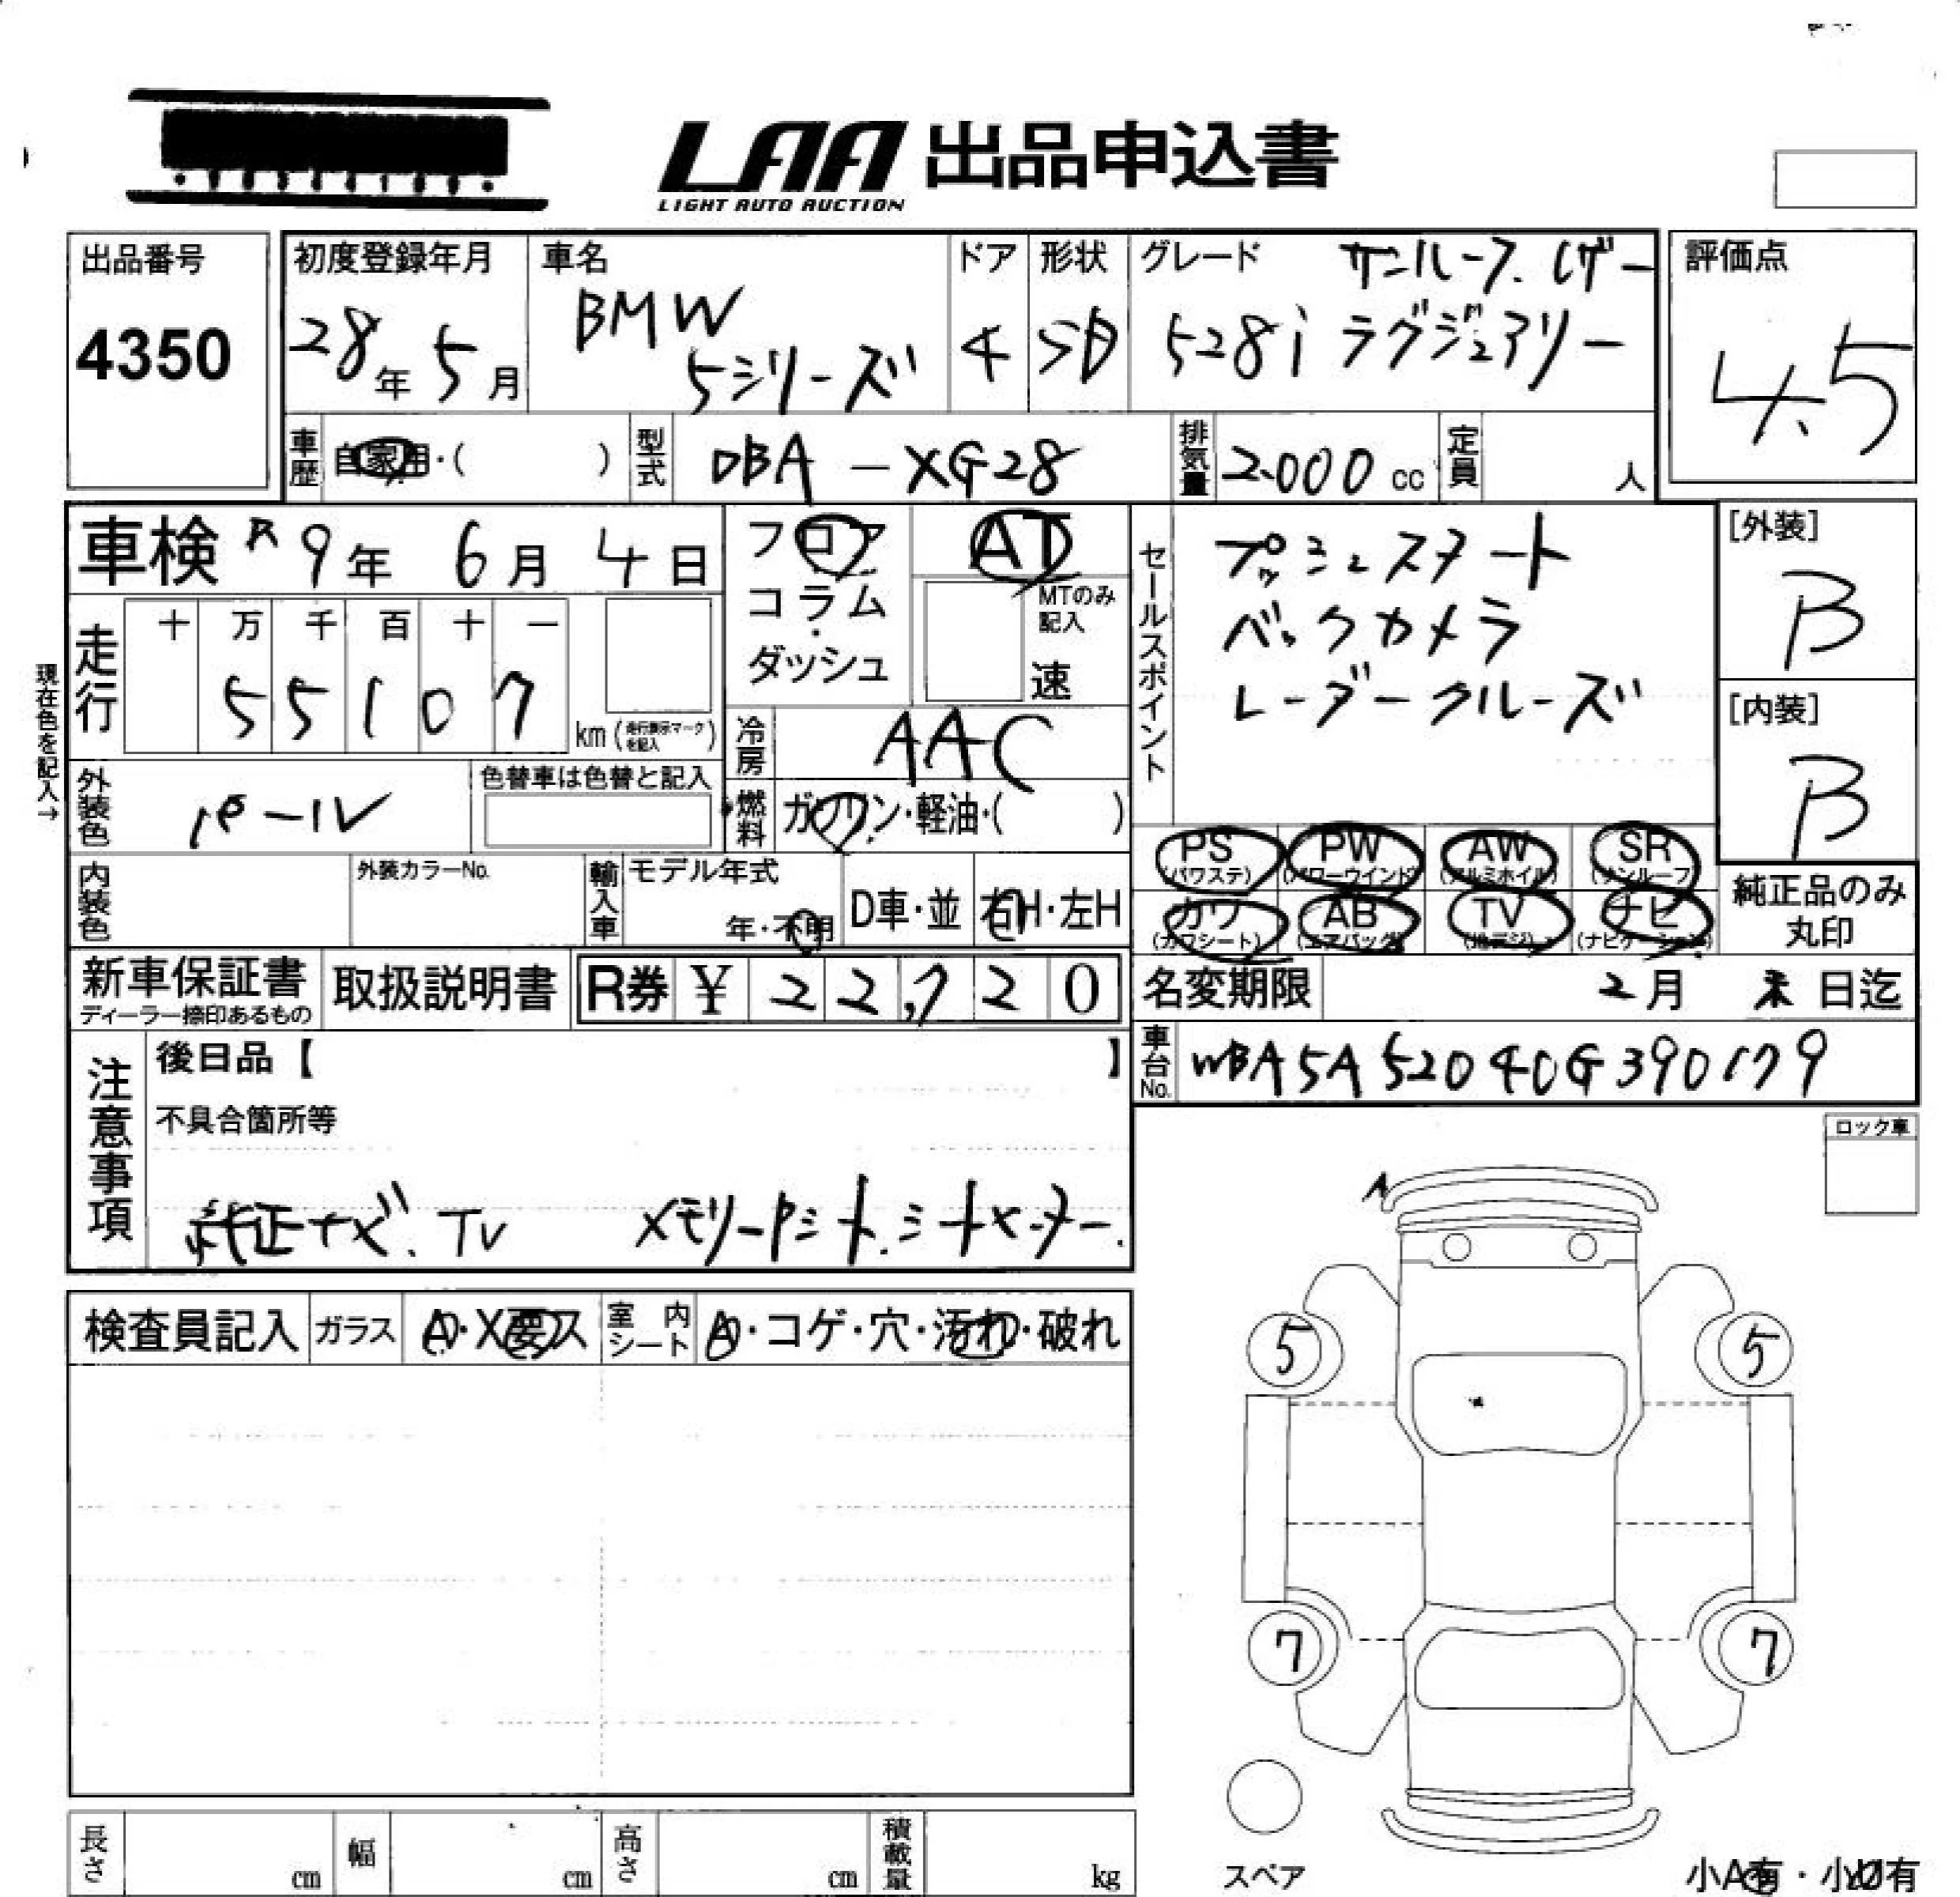 LAA 出品申込書
LIGHT AUTO AUCTION
出品番号
4350
初度登録年月
28年 5月
車名
BMW
5シリーズ
ドア
4
形状
SD
グレード
サンルーフ. レザー
528i ラグジュアリー
評価点
4.5
車歴
自家用・( )
型式
DBA - XG28
排気量
2000 cc
定員
人
車検 R9年 6月 4日
フロア
コラム
・
ダッシュ
AT
MTのみ
記入
速
セールスポイント
プッシュスタート
バックカメラ
レーダークルーズ
[外装]
B
[内装]
B
走行
十 万 千 百 十 一
5 5 1 0 7
km (走行表示マークを記入)
現在色を記入→
冷房
AAC
外装色
パール
色替車は色替と記入
燃料
ガソリン・軽油・( )
内装色
外装カラーNo.
輸入車
モデル年式
年・不明
D車・並
右H・左H
PS
(パワステ)
PW
(パワーウインド)
AW
(アルミホイル)
SR
(サンルーフ)
カワ
(カワシート)
AB
(エアバッグ)
TV
(地デジ)
ナビ
(ナビゲーション)
純正品のみ
丸印
新車保証書
ディーラー捺印あるもの
取扱説明書
R券 ¥ 22,720
名変期限 2月 末日迄
車台No.
WBA5A52040G390179
注意事項
後日品【 】
不具合箇所等
純正ナビ. TV メモリーPシート. シートヒーター.
ロック車
A
検査員記入
ガラス
A・X要ス
室内シート
A・コゲ・穴・汚れ・破れ
5 5
7 7
スペア
長さ cm
幅 cm
高さ cm
積載量 kg
小A有・小U有